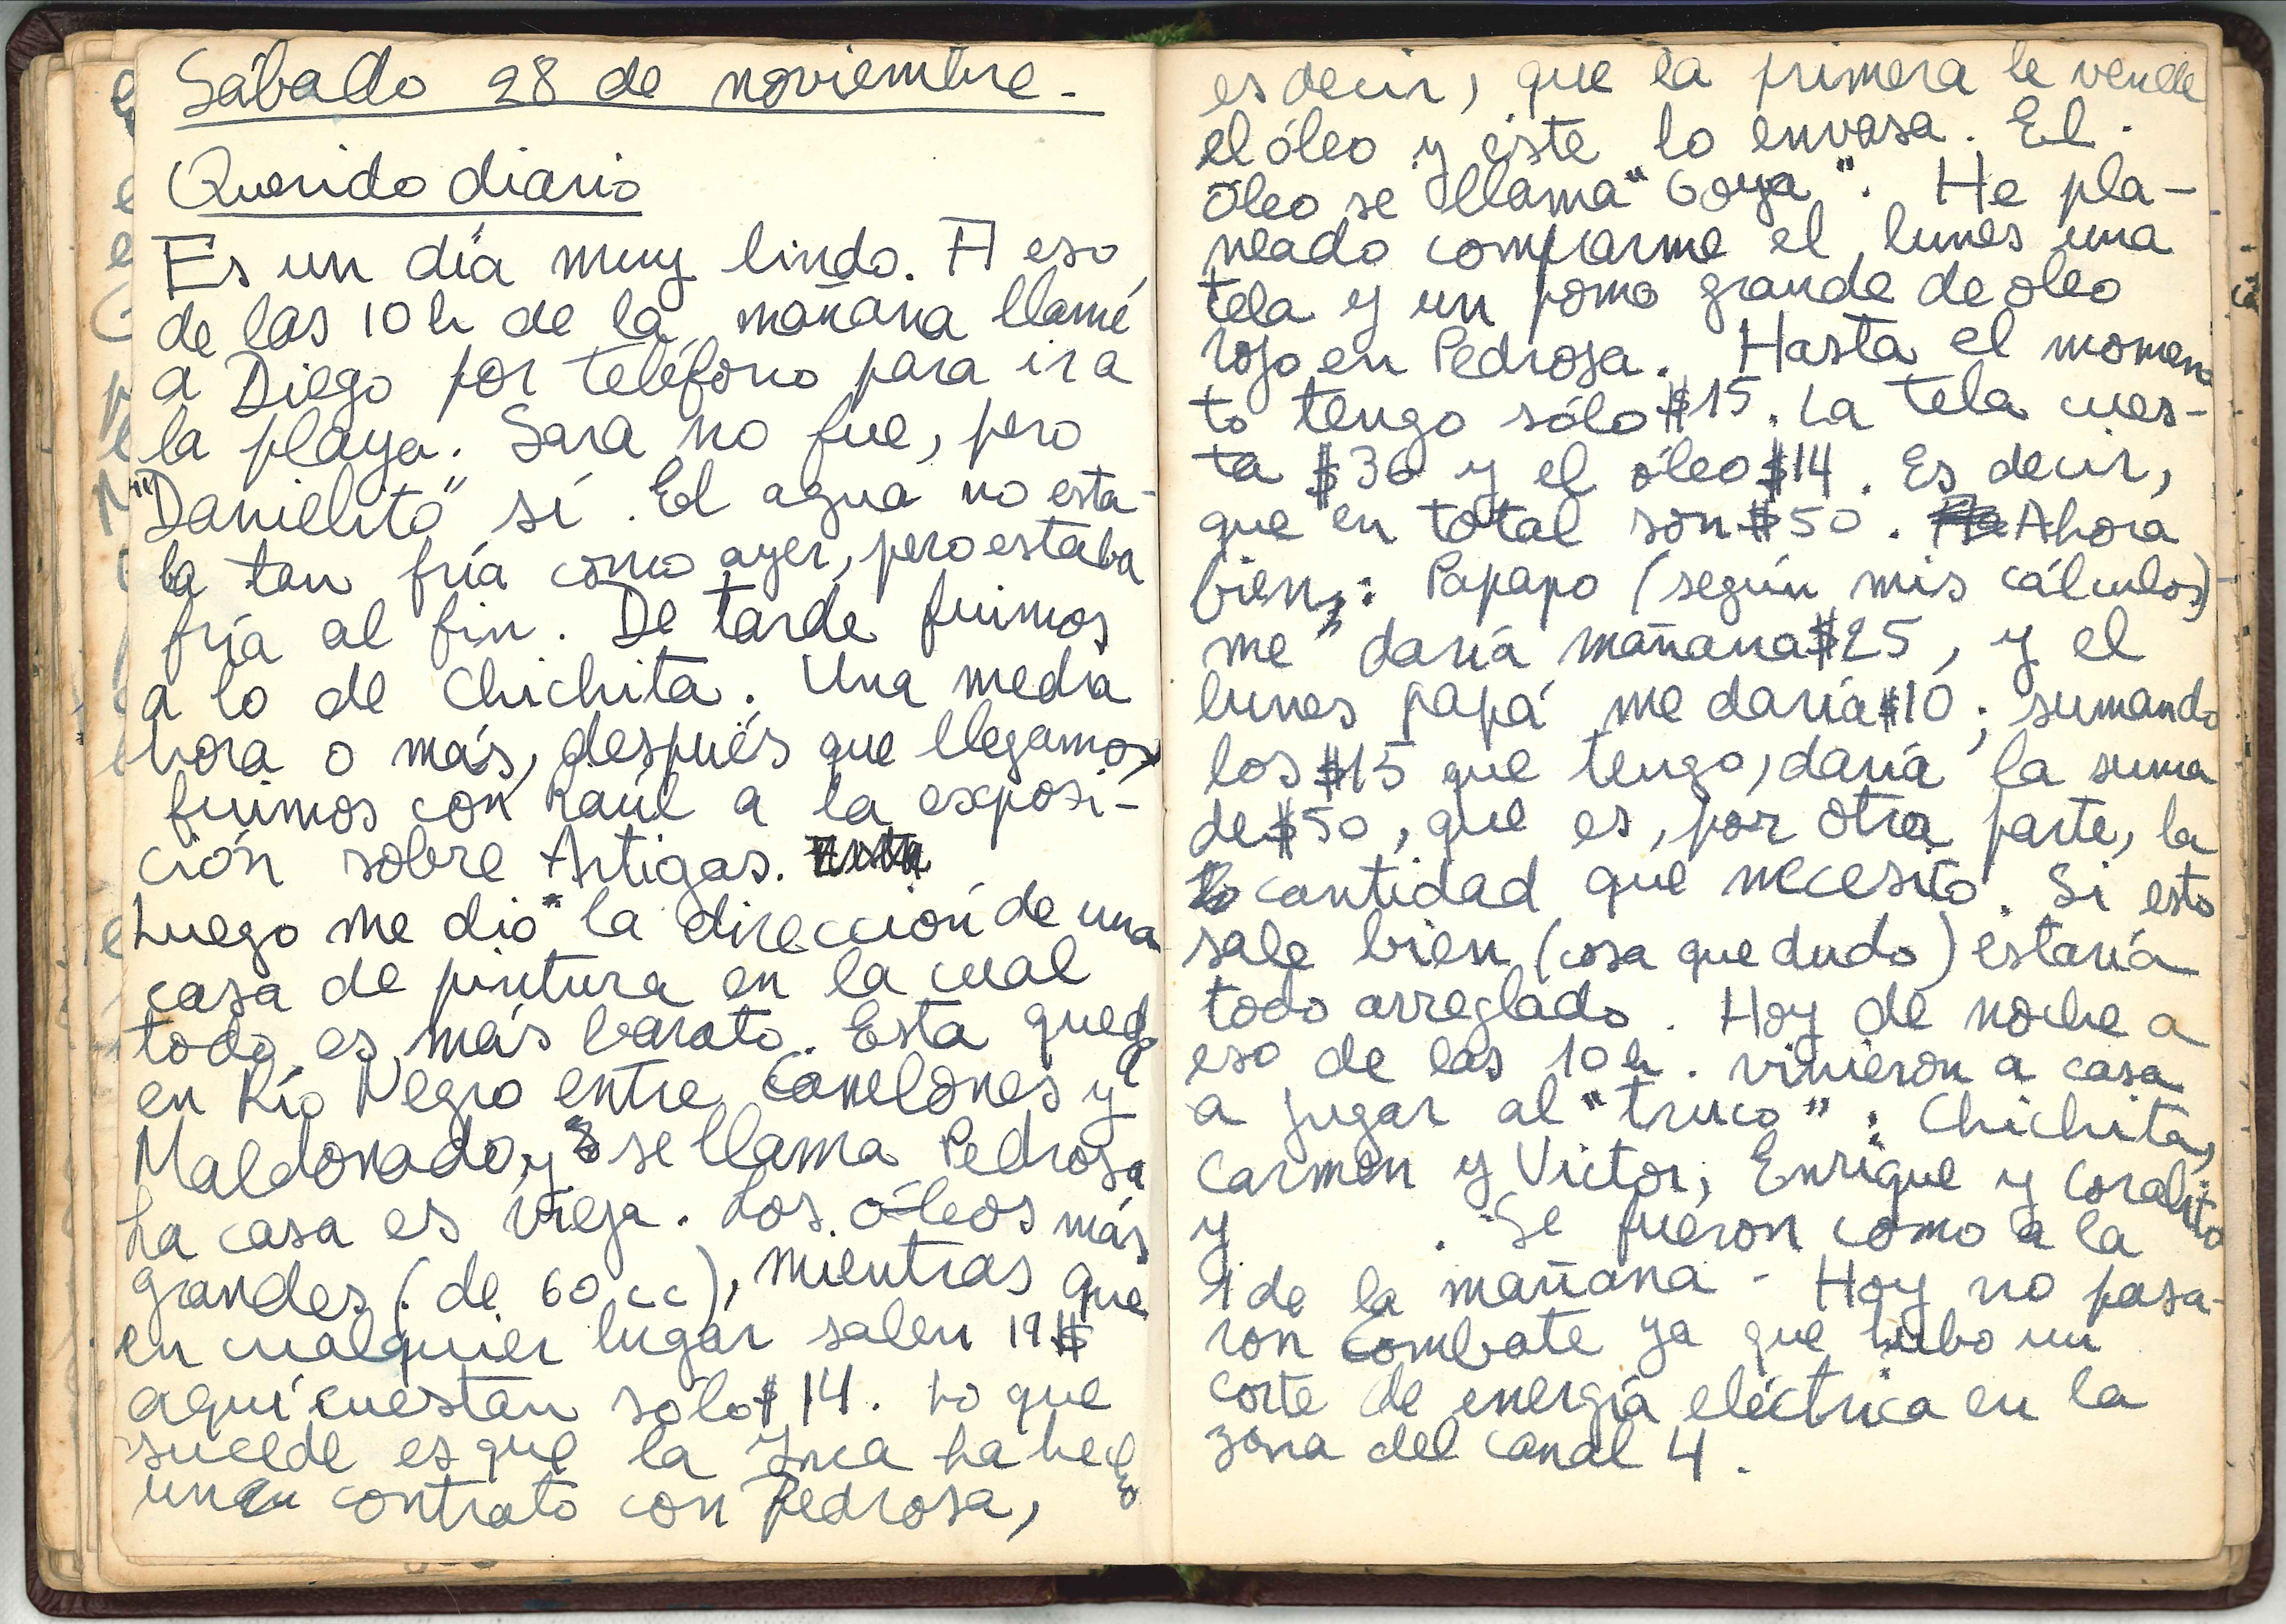 Sábado 28 de noviembre.
Querido diario
Es un día muy lindo. A eso
de las 10 h de la mañana llamé
a Diego por teléfono para ir a
la playa. Sara no fue, pero
"Danielito" sí. El agua no esta-
ba tan fría como ayer, pero estaba
fría al fin. De tarde fuimos
a lo de Chichita. Una media
hora o más, después que llegamos,
fuimos con Raúl a la exposi-
ción sobre Artigas.
Luego me dio la dirección de una
casa de pintura en la cual
todo es más barato. Esta queda
en Río Negro entre Canelones y
Maldonado, y se llama Pedrosa
La casa es vieja. Los óleos más
grandes (de 60 cc), mientras que
en cualquier lugar salen 19 $
aquí cuestan sólo $ 14. Lo que
sucede es que la Inca ha hecho
un contrato con Pedrosa,
es decir, que la primera le vende
el óleo y éste lo envasa. El
óleo se llama "Goya". He pla-
neado comprarme el lunes una
tela y un pomo grande de óleo
rojo en Pedrosa. Hasta el momen
to tengo sólo $15. La tela cues-
ta $36 y el óleo $14. Es decir,
que en total son $50. Ahora
bien,: Papapo (según mis cálculos)
me daría mañana $25, y el
lunes papá me daría $10; sumando
los $15 que tengo, daría la suma
de $50, que es, por otra parte, la
cantidad que necesito. Si esto
sale bien (cosa que dudo) estaría
todo arreglado. Hoy de noche a
eso de las 10 h. vinieron a casa
a jugar al "truco": Chichita,
Carmen y Víctor; Enrique y Coralito;
y . Se fueron como a la
1 de la mañana - Hoy no pasa-
ron Combate ya que hubo un
corte de energía eléctrica en la
zona del canal 4.